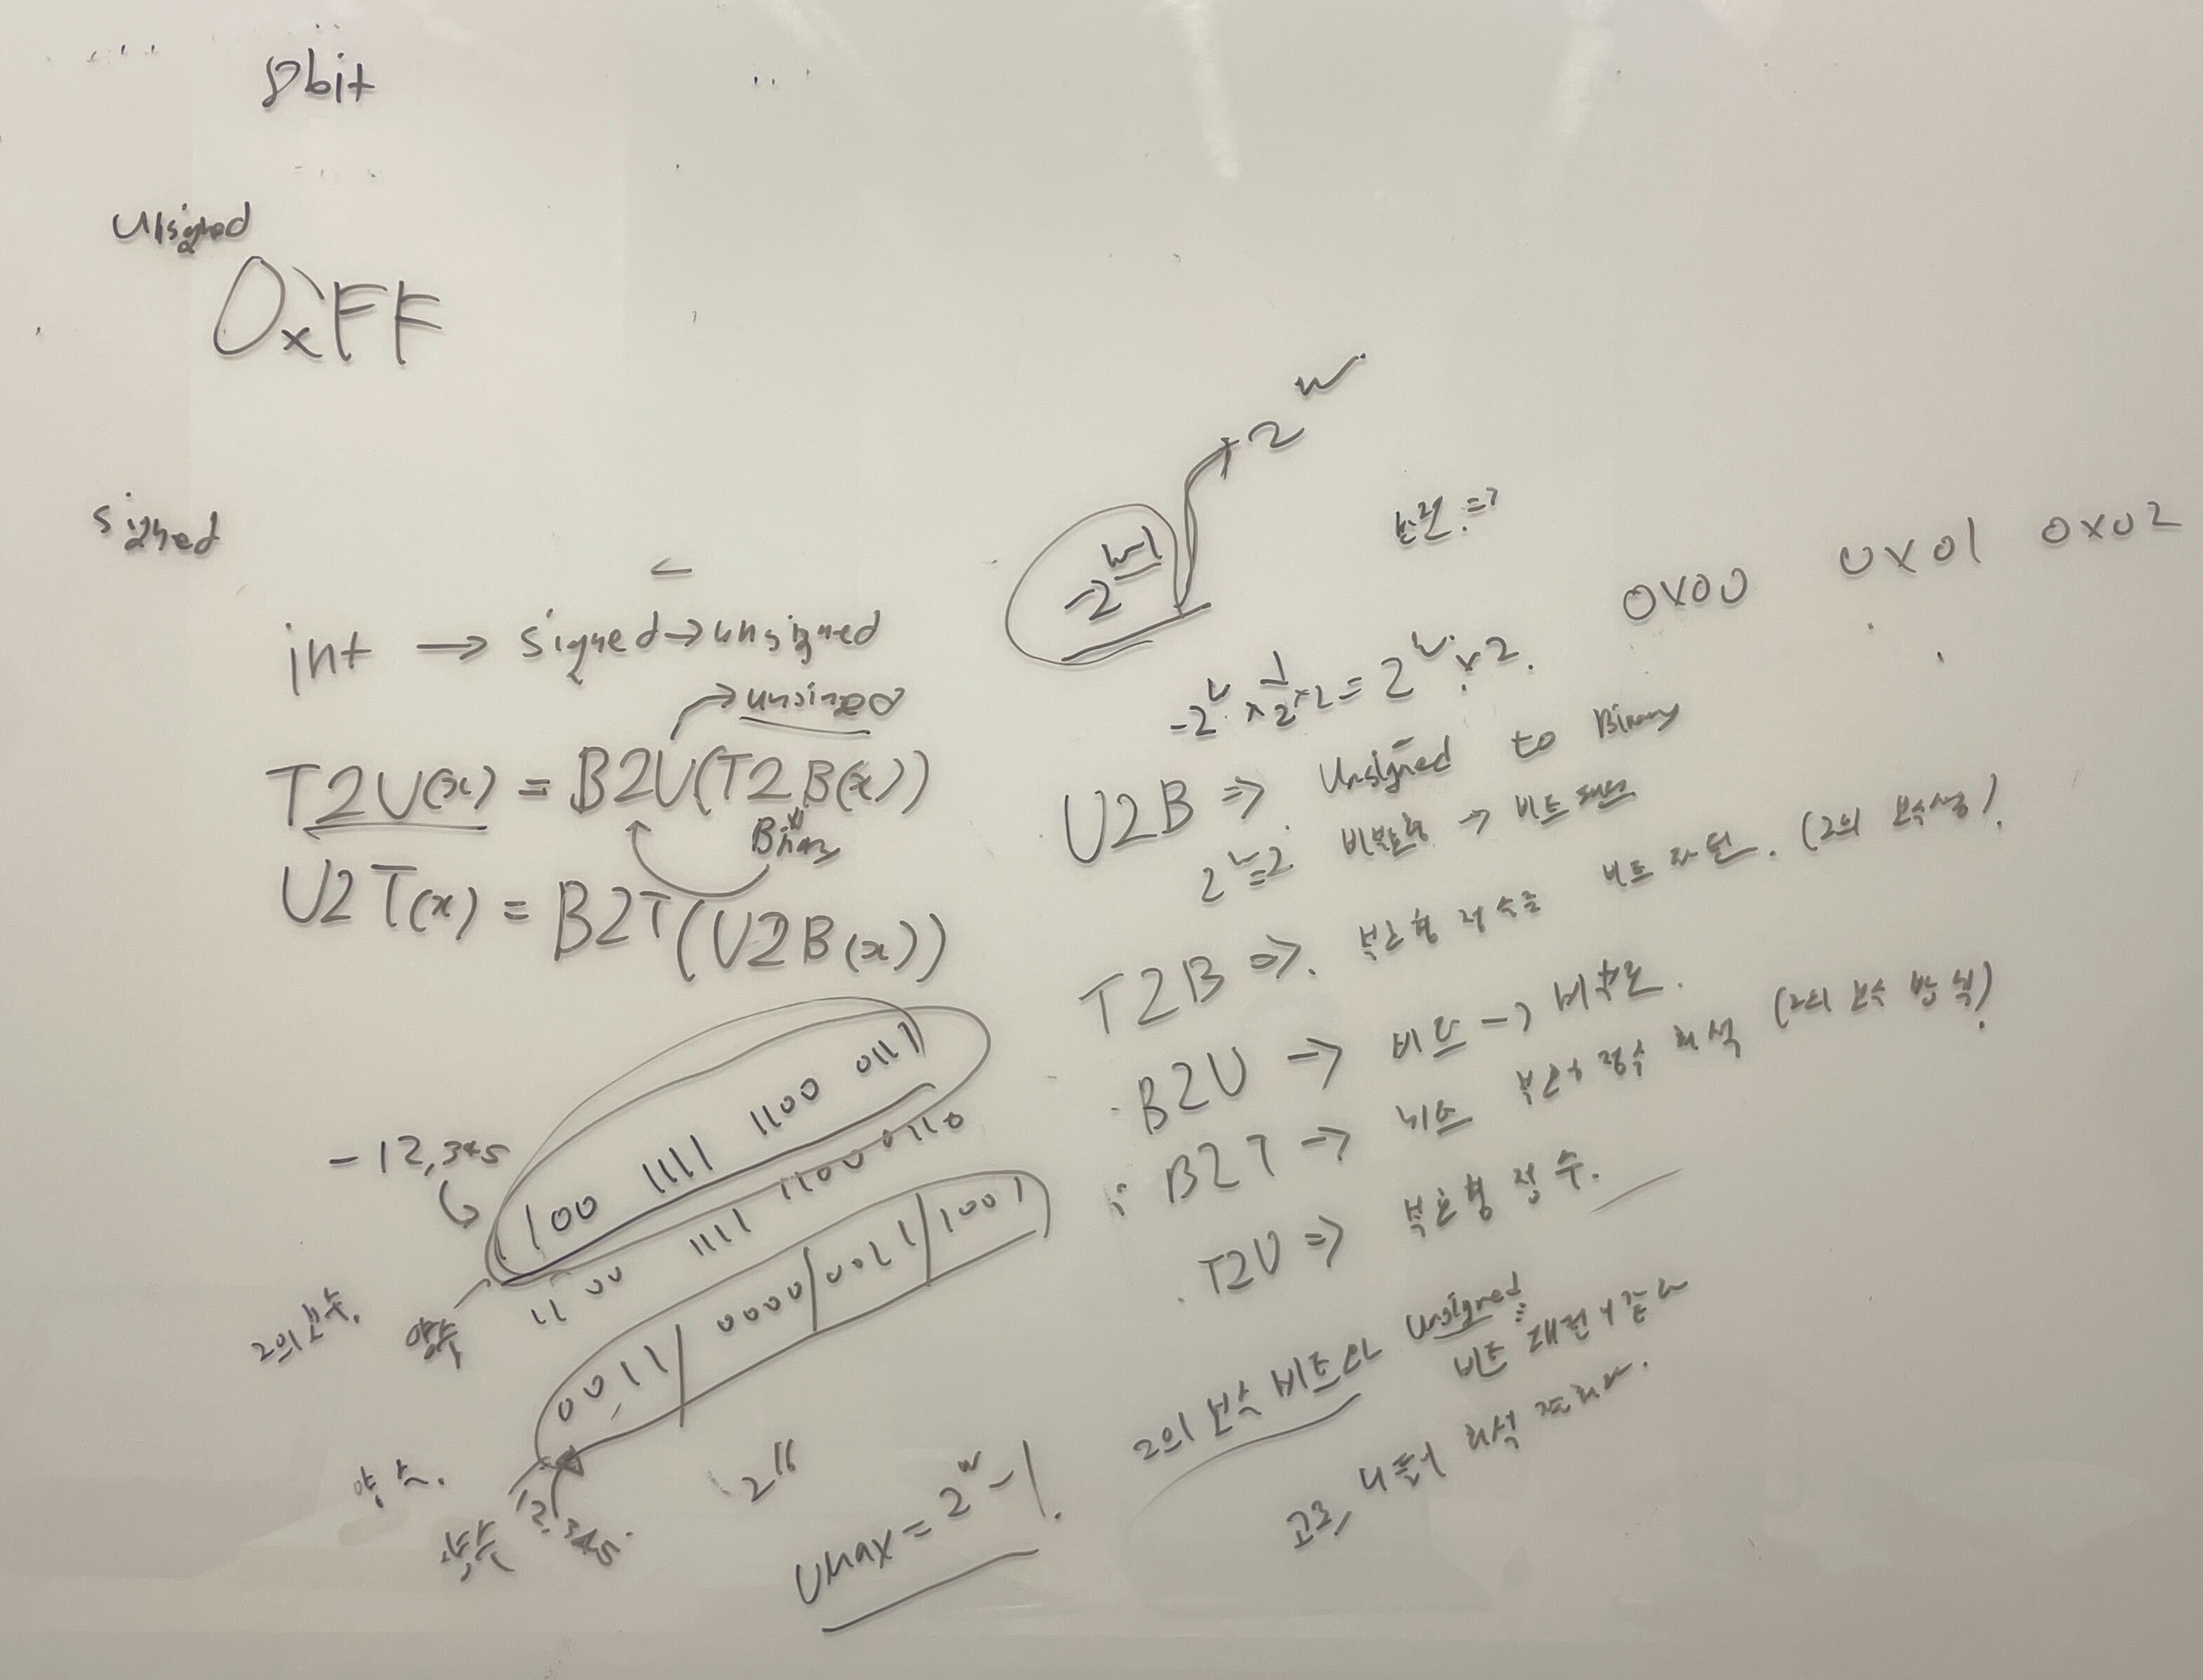 8bit
unsigned
0xFF
signed
int → signed → unsigned
→ unsined
T2U(x) = B2U(T2B(x))
Binary
U2T(x) = B2T(U2B(x))
-12,345
100 1111 1100 0111
1100 1111 1100 0110
0011/0000/0011/1001
2의 보수.
양수
양수.
12,345.
2^16
UMax = 2^w - 1.
+2^w
-2^w-1
-2^w × 1/2 × 2 = 2^w × 2.
0x00 0x01 0x02
U2B => Unsigned to Binary
비부호형 → 비트 패턴
T2B => 부호형 정수를 비트 패턴. (2의 보수)
B2U → 비트 → 비부호.
B2T → 비트 부호 정수 해석 (2의 보수 방식)
T2U => 부호형 정수.
2의 보수 비트와 unsigned
비트 패턴이 같다
고로, 해석